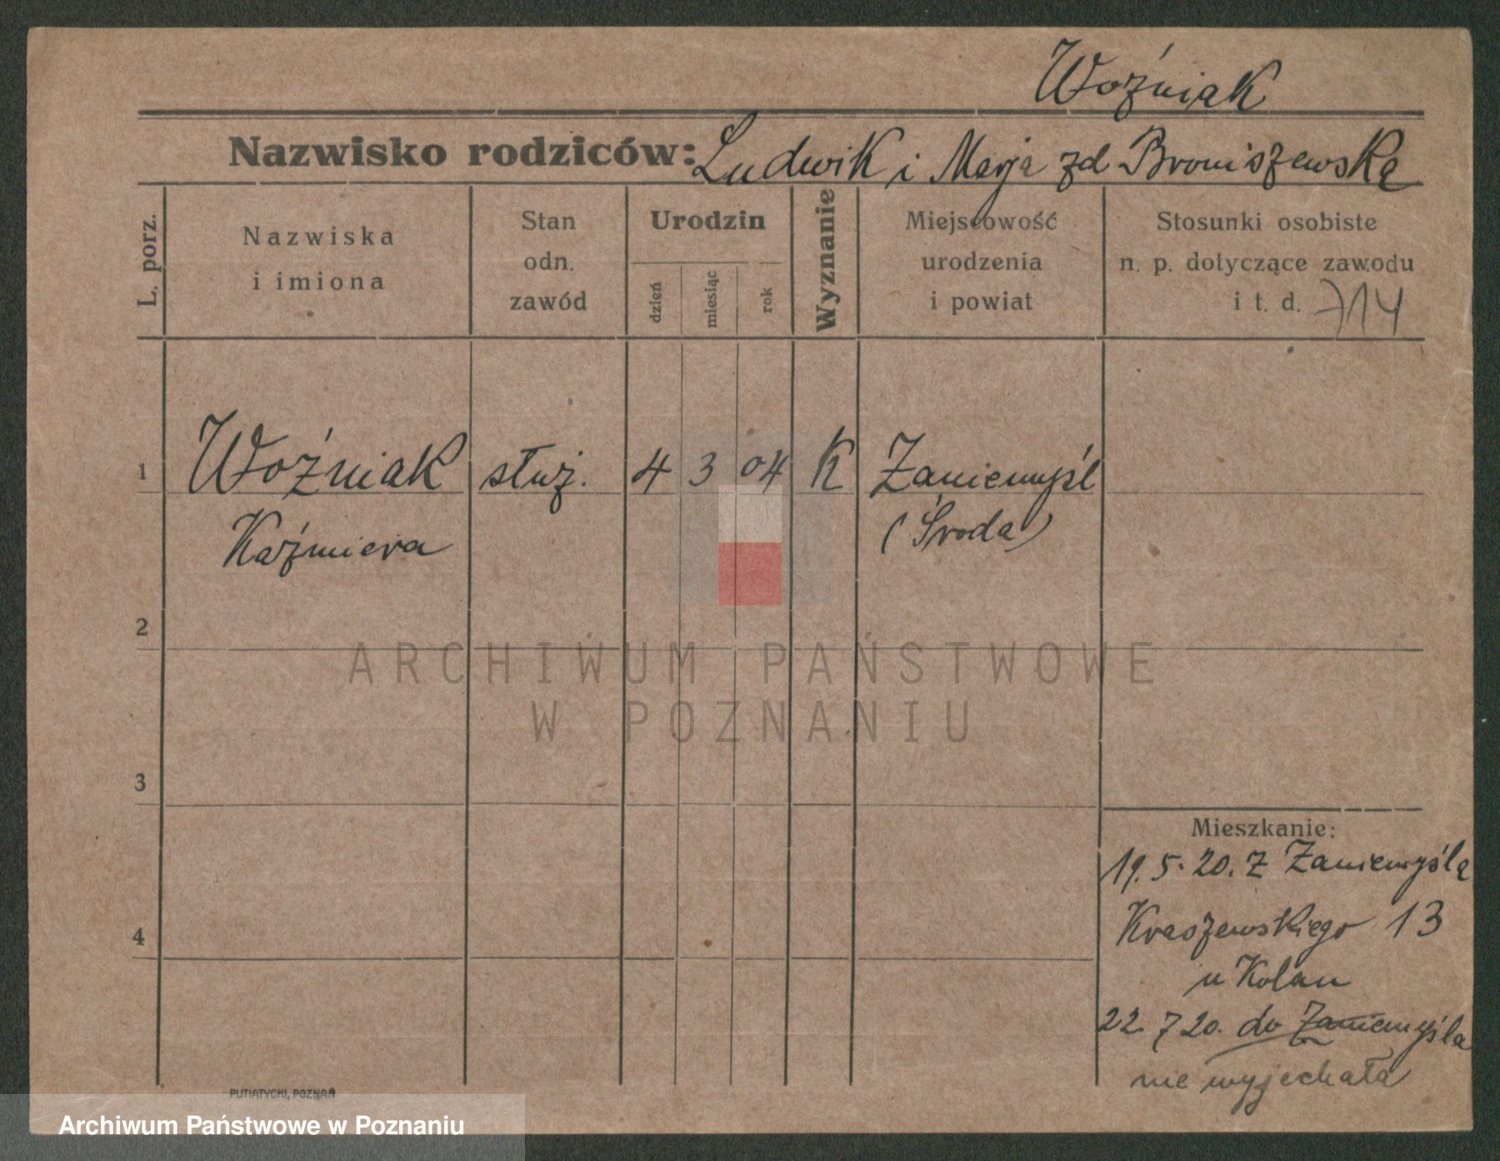 Woźniak
Nazwisko rodziców: Ludwik i Marja zd Broniszewską
L. porz.
Nazwiska
i imiona
Stan
odn.
zawód
Urodzin
dzień
miesiąc
rok
Wyznanie
Miejscowość
urodzenia
i powiat
Stosunki osobiste
n. p. dotyczące zawodu
i t. d. 714
1 Woźniak służ. 4 3 04 K Zaniemyśl
Kaźmiera (Środa)
2
3
4
Mieszkanie:
19.5.20. z Zaniemyśla
Kraszewskiego 13
u Kolan
22.7 20. do Zaniemyśla
nie wyjechała
PUTIATYCKI, POZNAŃ
ARCHIWUM PAŃSTWOWE
W POZNANIU
Archiwum Państwowe w Poznaniu